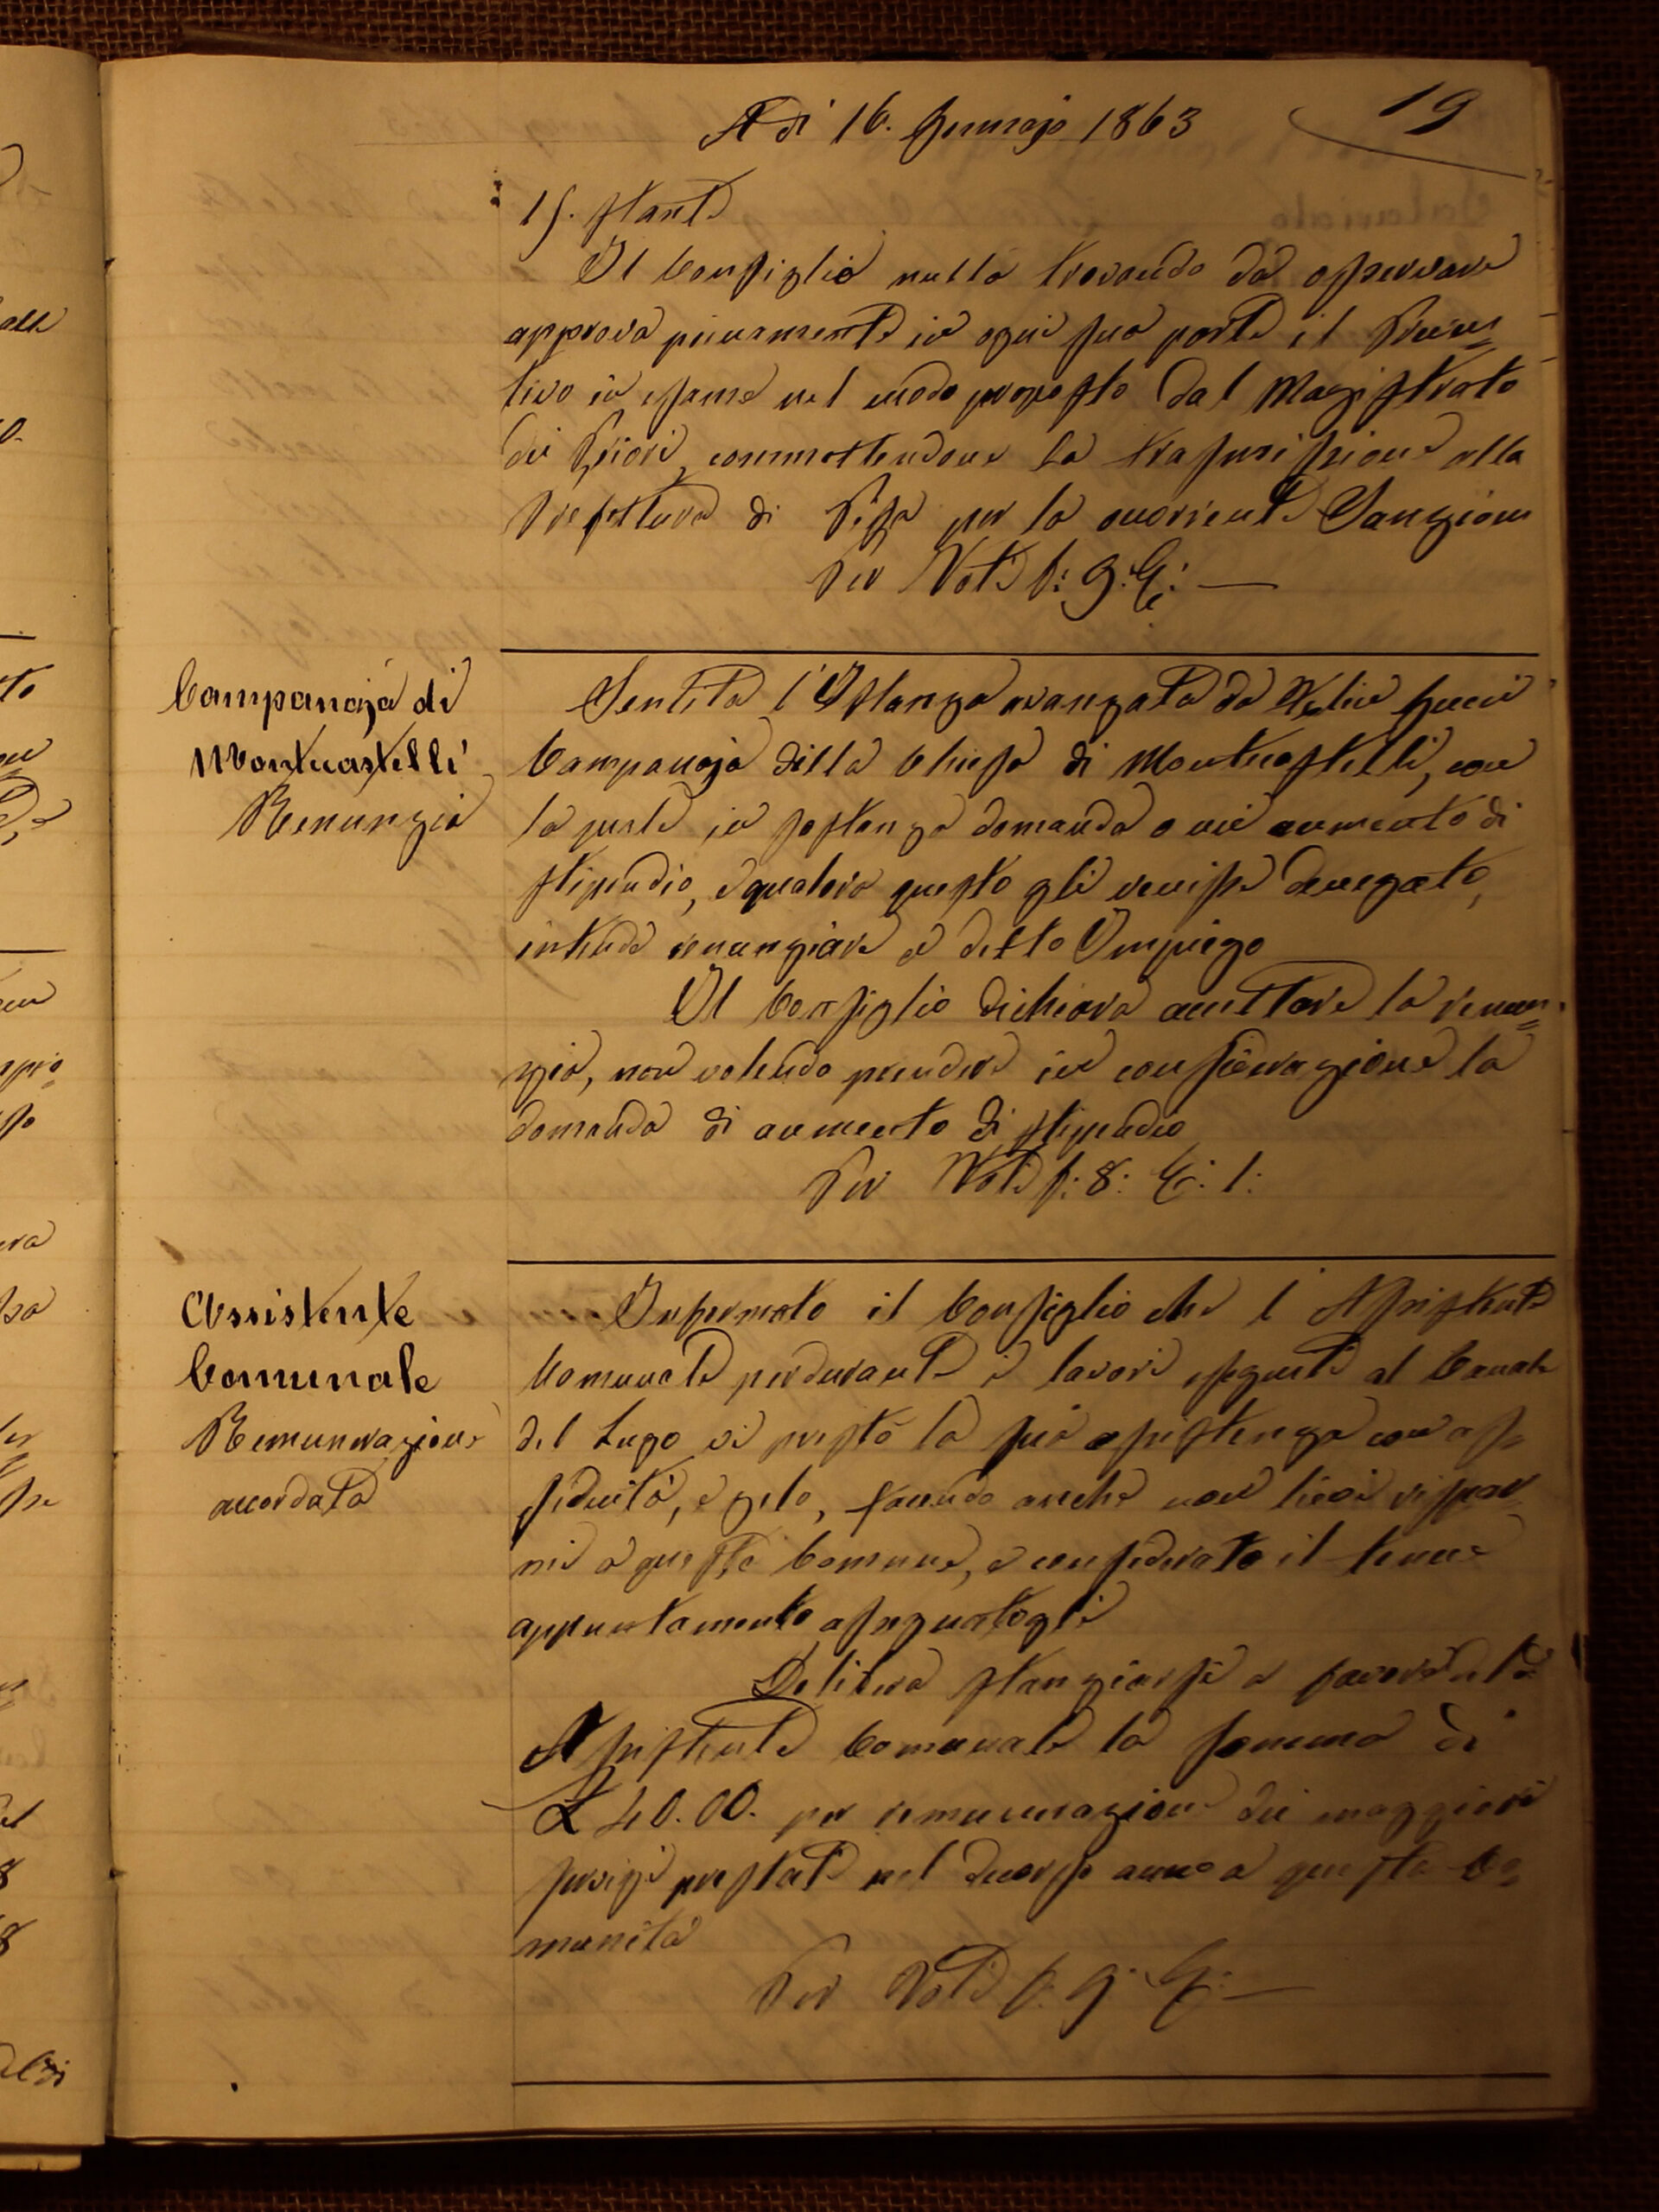 Adi 16. Gennajo 1863
19
15. stante
Il Consiglio nulla trovando da osservare
approva pienamente in ogni sua parte il Preven=
tivo in esame nel modo proposto dal Magistrato
dei Priori, commettendone la trasmissione alla
Prefettura di Pisa per la occorrente Sanzione
Per Voti f: 9: C: —
Campanajo di
Montecastelli
Renunzia
Sentita l'Istanza avanzata da Gucci
Campanajo della Chiesa di Montecastelli, con
la quale in sostanza domanda o un aumento di
stipendio, e qualora questo gli venisse denegato,
intende renunziare a detto Impiego
Il Consiglio dichiara accettare la renun=
zia, non volendo prendere in considerazione la
domanda di aumento di stipendio
Per Voti f: 8: C: 1:
Assistente
Comunale
Remunerazione
accordata
Informato il Consiglio che l'Assistente
Comunale perdurante i lavori eseguiti al Canale
del Lugo vi prestò la sua assistenza con as=
siduità, e zelo, facendo anche non lievi rispar
mi a questa Comune, e considerato il tenue
appuntamento assegnatogli
Delibera stanziarsi a favore del
Assistente Comunale la somma di
£ 40.00. per remunerazione dei maggiori
servizi prestati nel decorso anno a questa Co=
munità
Per Voti f. 9. C: —